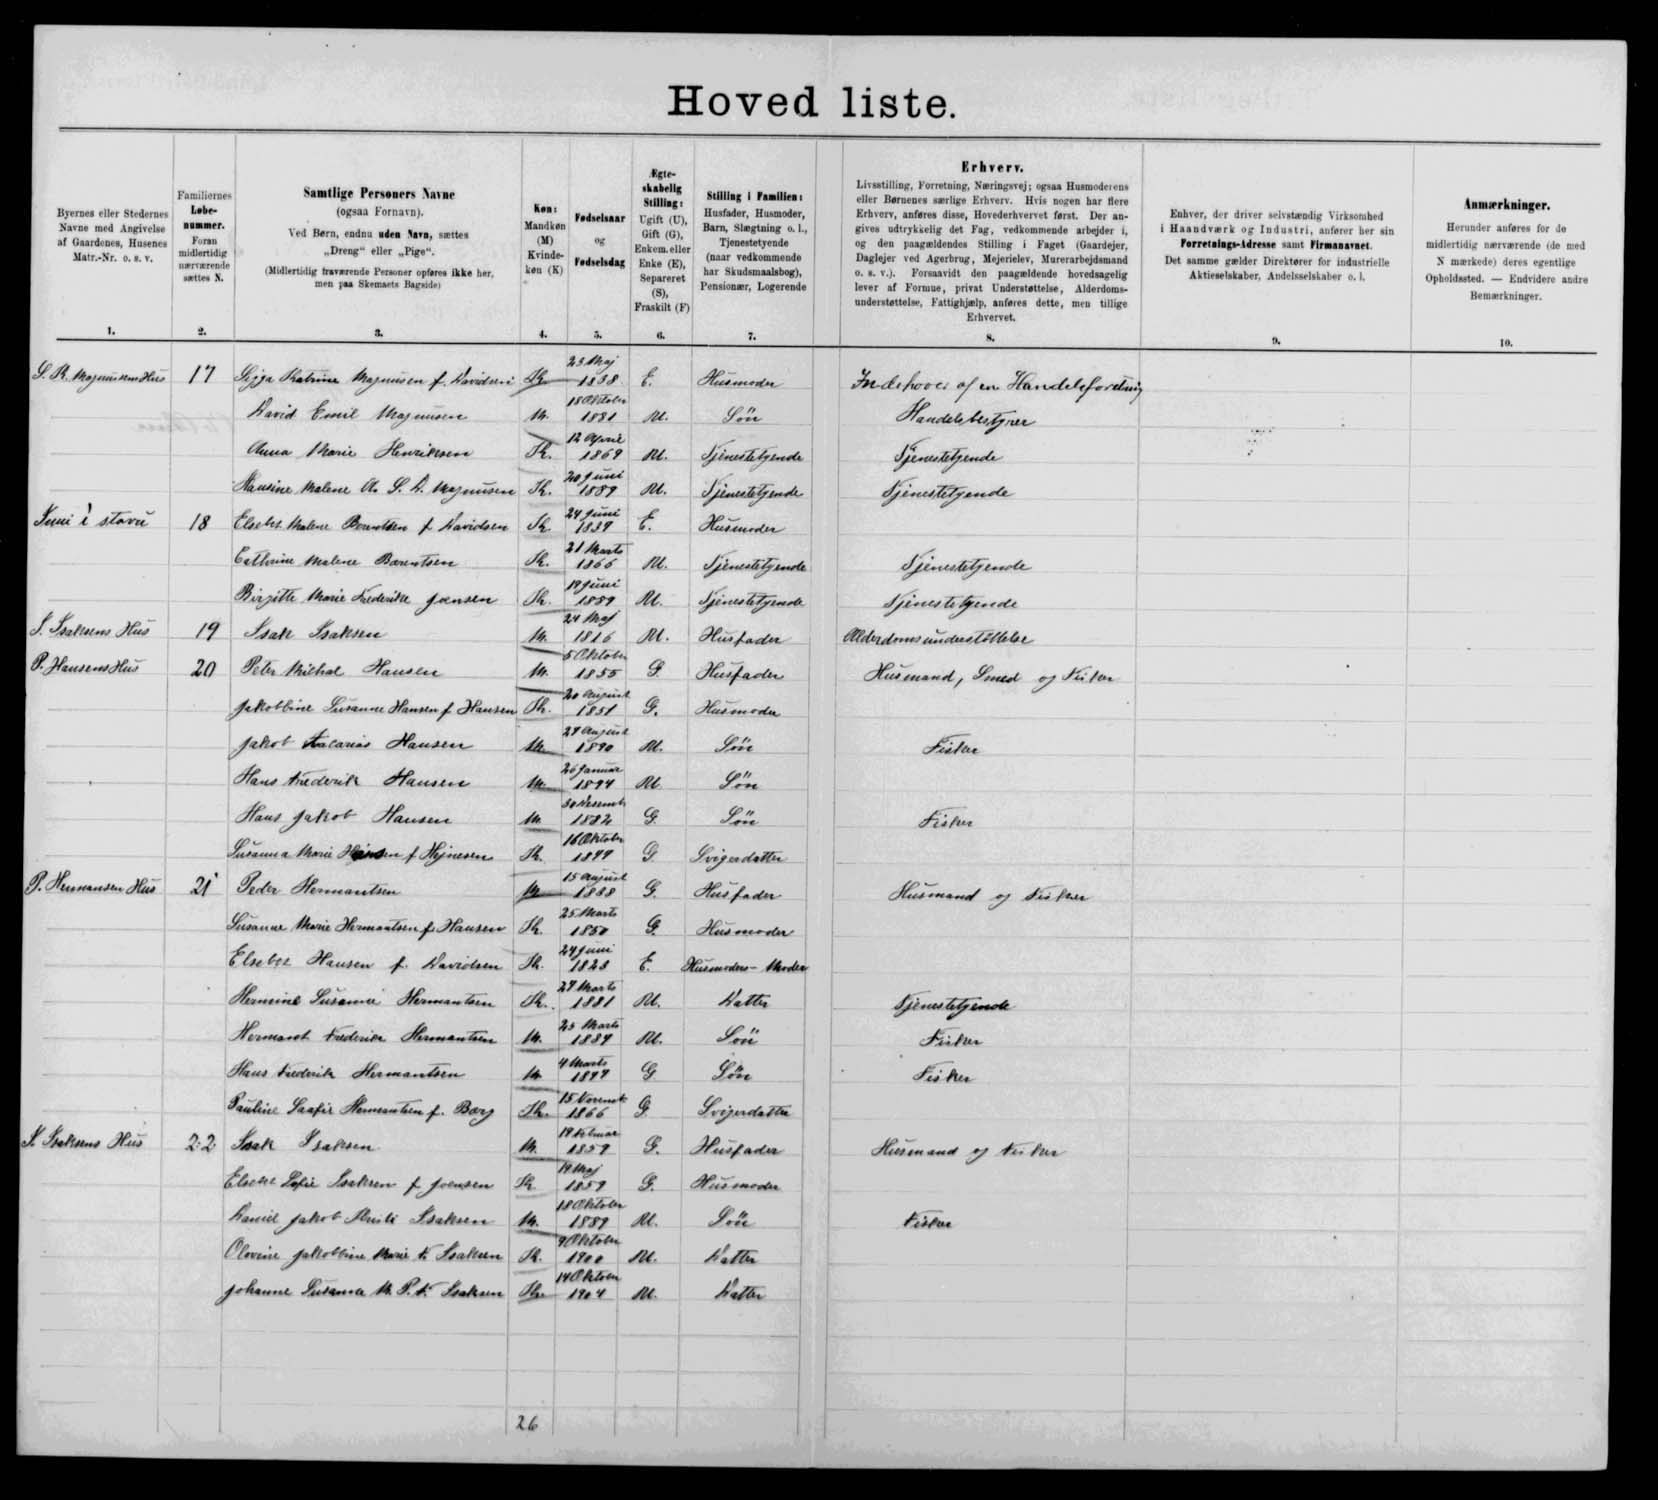 Hoved liste.
Byernes eller Stedernes
Navne med Angivelse
af Gaardenes, Husenes
Matr.-Nr. o. s. v.
1.
Familiernes
Løbe-
nummer.
Foran
midlertidig
nærværende
sættes N.
2.
Samtlige Personers Navne
(ogsaa Fornavn).
Ved Børn, endnu uden Navn, sættes
„Dreng“ eller „Pige“.
(Midlertidig fraværende Personer opføres ikke her,
men paa Skemaets Bagside)
3.
Køn:
Mandkøn
(M)
Kvinde-
køn (K)
4.
Fødselsaar
og
Fødselsdag
5.
Ægte-
skabelig
Stilling:
Ugift (U),
Gift (G),
Enkem. eller
Enke (E),
Separeret
(S),
Fraskilt (F)
6.
Stilling i Familien:
Husfader, Husmoder,
Barn, Slægtning o. l.,
Tjenestetyende
(naar vedkommende
har Skudsmaalsbog),
Pensionær, Logerende
7.
Erhverv.
Livsstilling, Forretning, Næringsvej; ogsaa Husmoderens
eller Børnenes særlige Erhverv. Hvis nogen har flere
Erhverv, anføres disse, Hovederhvervet først. Der an-
gives udtrykkelig det Fag, vedkommende arbejder i,
og den paagældendes Stilling i Faget (Gaardejer,
Daglejer ved Agerbrug, Mejerielev, Murerarbejdsmand
o. s. v.). Forsaavidt den paagældende hovedsagelig
lever af Formue, privat Understøttelse, Alderdoms-
understøttelse, Fattighjælp, anføres dette, men tillige
Erhvervet.
8.
Enhver, der driver selvstændig Virksomhed
i Haandværk og Industri, anfører her sin
Forretnings-Adresse samt Firmanavnet.
Det samme gælder Direktører for industrielle
Aktieselskaber, Andelsselskaber o. l.
9.
Anmærkninger.
Herunder anføres for de
midlertidig nærværende (de med
N mærkede) deres egentlige
Opholdssted. — Endvidere andre
Bemærkninger.
10.
Magnussens Hus 17 Katrine Magnusen f. Davidsen K. 23 Maj 1838 E. Husmoder Indehaver af en Handelsforetning
David Emil Magnusen M. 18 Oktober 1881 U. Søn Handelsbestyrer
Anna Marie Henriksen K. 12 April 1869 U. Tjenestetyende Tjenestetyende
Hansine Malene Magnusen K. 20 Juni 1889 U. Tjenestetyende Tjenestetyende
i stovu 18 Elsebet Malene Berentsen f. Davidsen K. 24 Juni 1839 E. Husmoder
Cathrine Malene Barentsen K. 21 Marts 1866 U. Tjenestetyende Tjenestetyende
Birgitte Marie Frederikke Joensen K. 19 Juni 1889 U. Tjenestetyende Tjenestetyende
I. Isaksens Hus 19 Isak Isaksen M. 24 Maj 1816 U. Husfader Alderdomsunderstøttelse
P. Hansens Hus 20 Peter Mikhal Hansen M. 5 Oktober 1855 G. Husfader Husmand, Smed og Fisker
Jakobbine Susanne Hansen f. Hansen K. 20 August 1851 G. Husmoder
Jakob Hansen M. August 1890 U. Søn Fisker
Hans Frederik Hansen M. 26 Januar 1894 U. Søn
Hans Jakob Hansen M. 30 Desemb. 1882 G. Søn Fisker
Susanna Marie Hansen f. Hejnesen K. 16 Oktober G. Svigerdatter
P. Hermansen Hus 21 Peder Hermantsen M. 15 August 1838 G. Husfader Husmand og Fisker
Susanne Marie Hermantsen f. Hansen K. 25 Marts 1850 G. Husmoder
Elsebet Hansen f. Davidsen K. 24 Juni 1823 E. Husmoders-Moder
Hermine Susanne Hermantsen K. Marts 1881 U. Datter Tjenestetyende
Hermant Frederik Hermantsen M. 25 Marts U. Søn Fisker
Hans Frederik Hermantsen M. 4 Marts G. Søn Fisker
Pauline Hermantsen f. Berg K. 15 Novemb. 1866 G. Svigerdatter
Isaksens Hus 22 Isak Isaksen M. 19 Februar 1859 G. Husfader Husmand og Fisker
Elsebet Sofie Isaksen f. Joensen K. 19 Maj 1859 G. Husmoder
Daniel Jakob Isaksen M. 18 Oktober 1889 U. Søn Fisker
Olevine Jakobbine Marie F. Isaksen K. 9 Oktober 1900 U. Datter
Johanne Susanna M. P. F. Isaksen K. 14 Oktober 1904 U. Datter
26